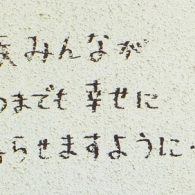 みんなが
つまでも幸せに
らせますように